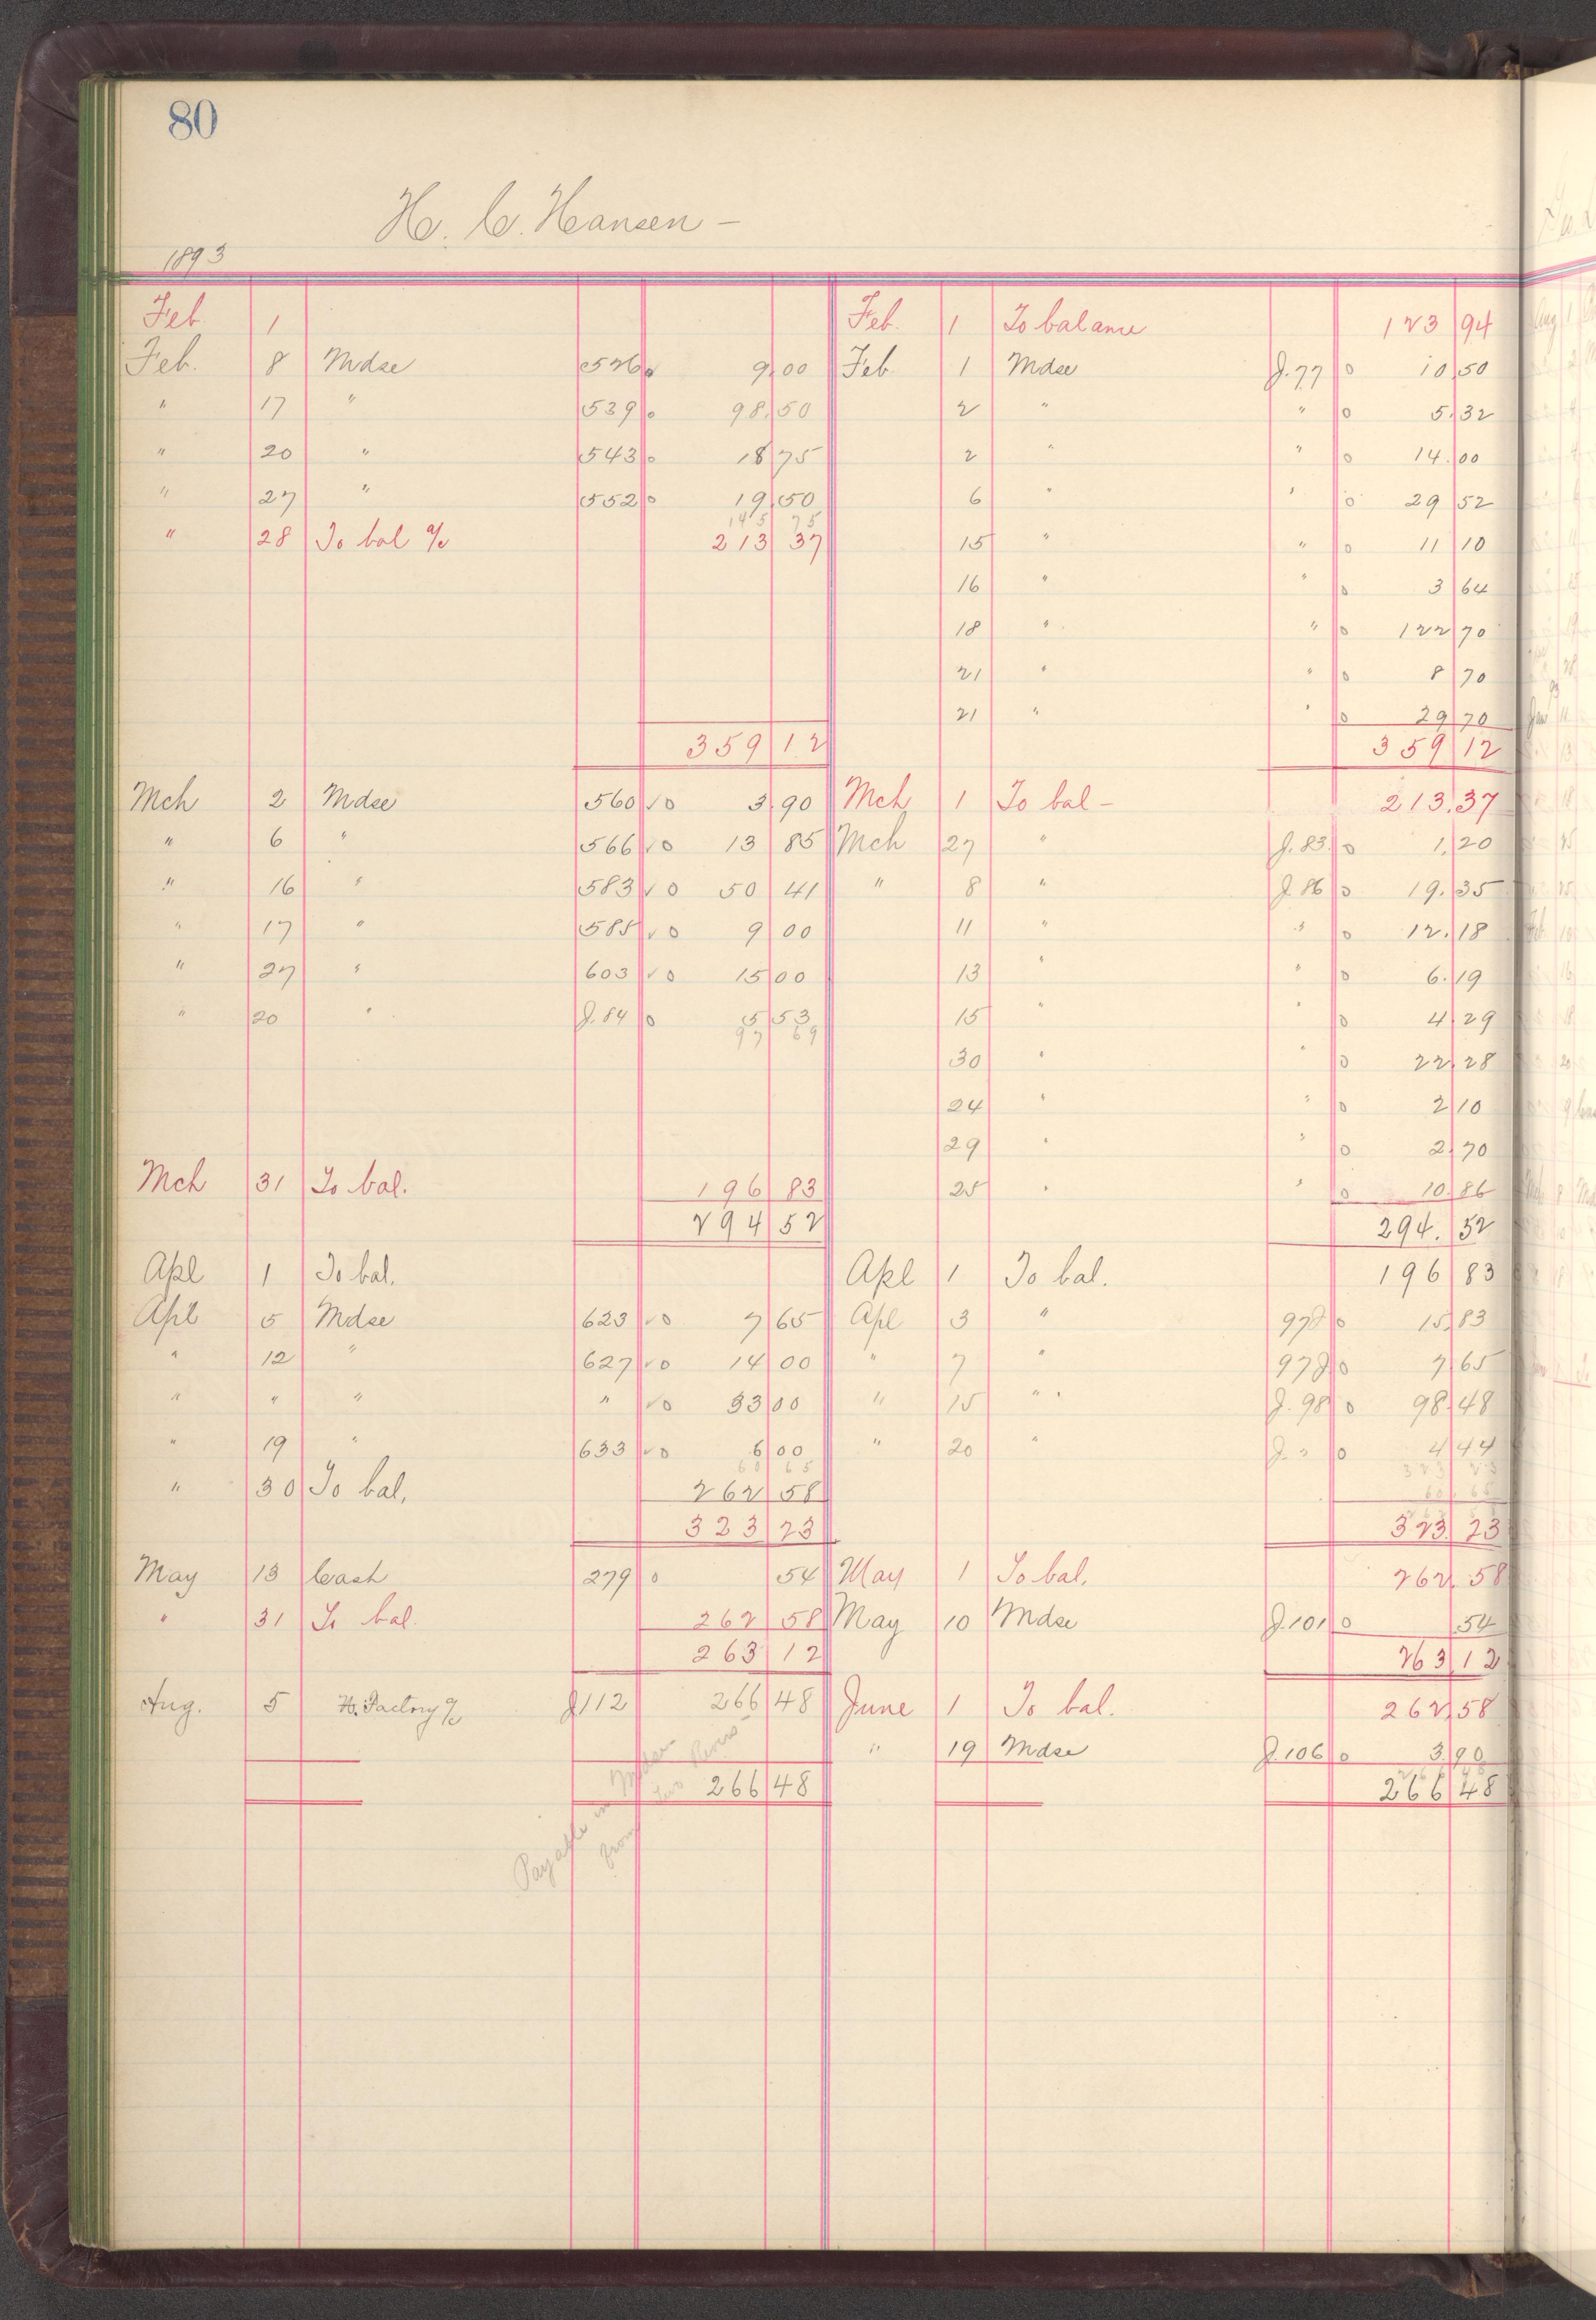 80
H. C. Hansen –
1893
Feb. 1 Feb. 1 To balance 123 94
Feb. 8 Mdse 526 o 9 00 Feb 1 Mdse J. 77 o 10 50
" 17 " 539 o 98 50 2 " " o 5 32
" 20 " 543 o 18 75 2 " " o 14 00
" 27 " 552 o 19 50 6 " " o 29 52
145 75
" 28 To bal a/c 213 37 15 " " o 11 10
16 " " o 3 64
18 " " o 122 70
21 " " o 8 70
21 " " o 29 70
359 12 359 12
Mch 2 Mdse 560 ✓o 3 90 Mch 1 To bal – 213.37
" 6 " 566 ✓o 13 85 Mch 27 " J. 83 o 1 20
" 16 " 583 ✓o 50 41 " 8 " J. 86 o 19.35
" 17 " 585 ✓o 9 00 11 " " o 12.18
" 27 " 603 ✓o 15 00 13 " " o 6.19
" 20 " J. 84 o 5 53 15 " " o 4 29
97 69
30 " " o 22 28
24 " " o 2 10
29 " " o 2 70
Mch 31 To bal. 196 83 25 " " o 10 86
294 52 294. 52
Apl 1 To bal. Apl 1 To bal. 196 83
Apl 5 Mdse 623 ✓o 7 65 Apl 3 " 97J o 15 83
" 12 " 627 ✓o 14 00 " 7 " 97J o 7 65
" " " " ✓o 33 00 " 15 " J. 98 o 98 48
" 19 " 633 ✓o 6 00 " 20 " J. " o 4 44
60 65 323 23
" 30 To bal. 262 58 60 65
323 23 323 23
May 13 Cash 279 o 54 May 1 To bal. 262 58
" 31 To bal. 262 58 May 10 Mdse J. 101 o .54
263 12 263 12
Aug. 5 H. Factory a/c J112 266 48 June 1 To bal. 262 58
" 19 Mdse J. 106 o 3.90
266 48 266 48
Payable in Mdse
from Two Rivers